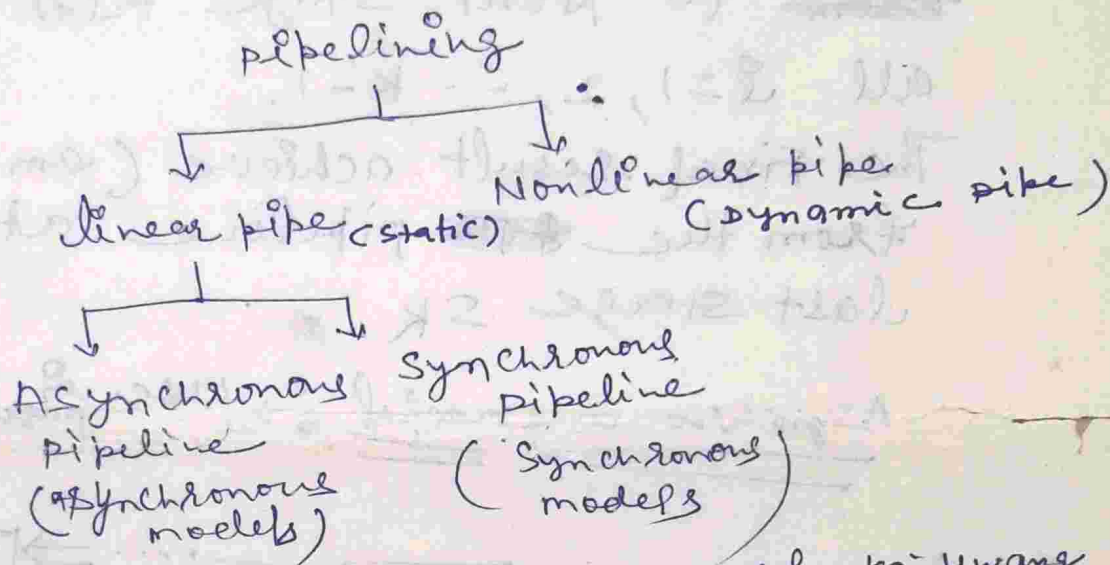 pipelining
linear pipe (static)
Nonlinear pipe
(Dynamic pipe)
Asynchronous
pipeline
(asynchronous
models)
Synchronous
pipeline
(Synchronous
models)
Hwang